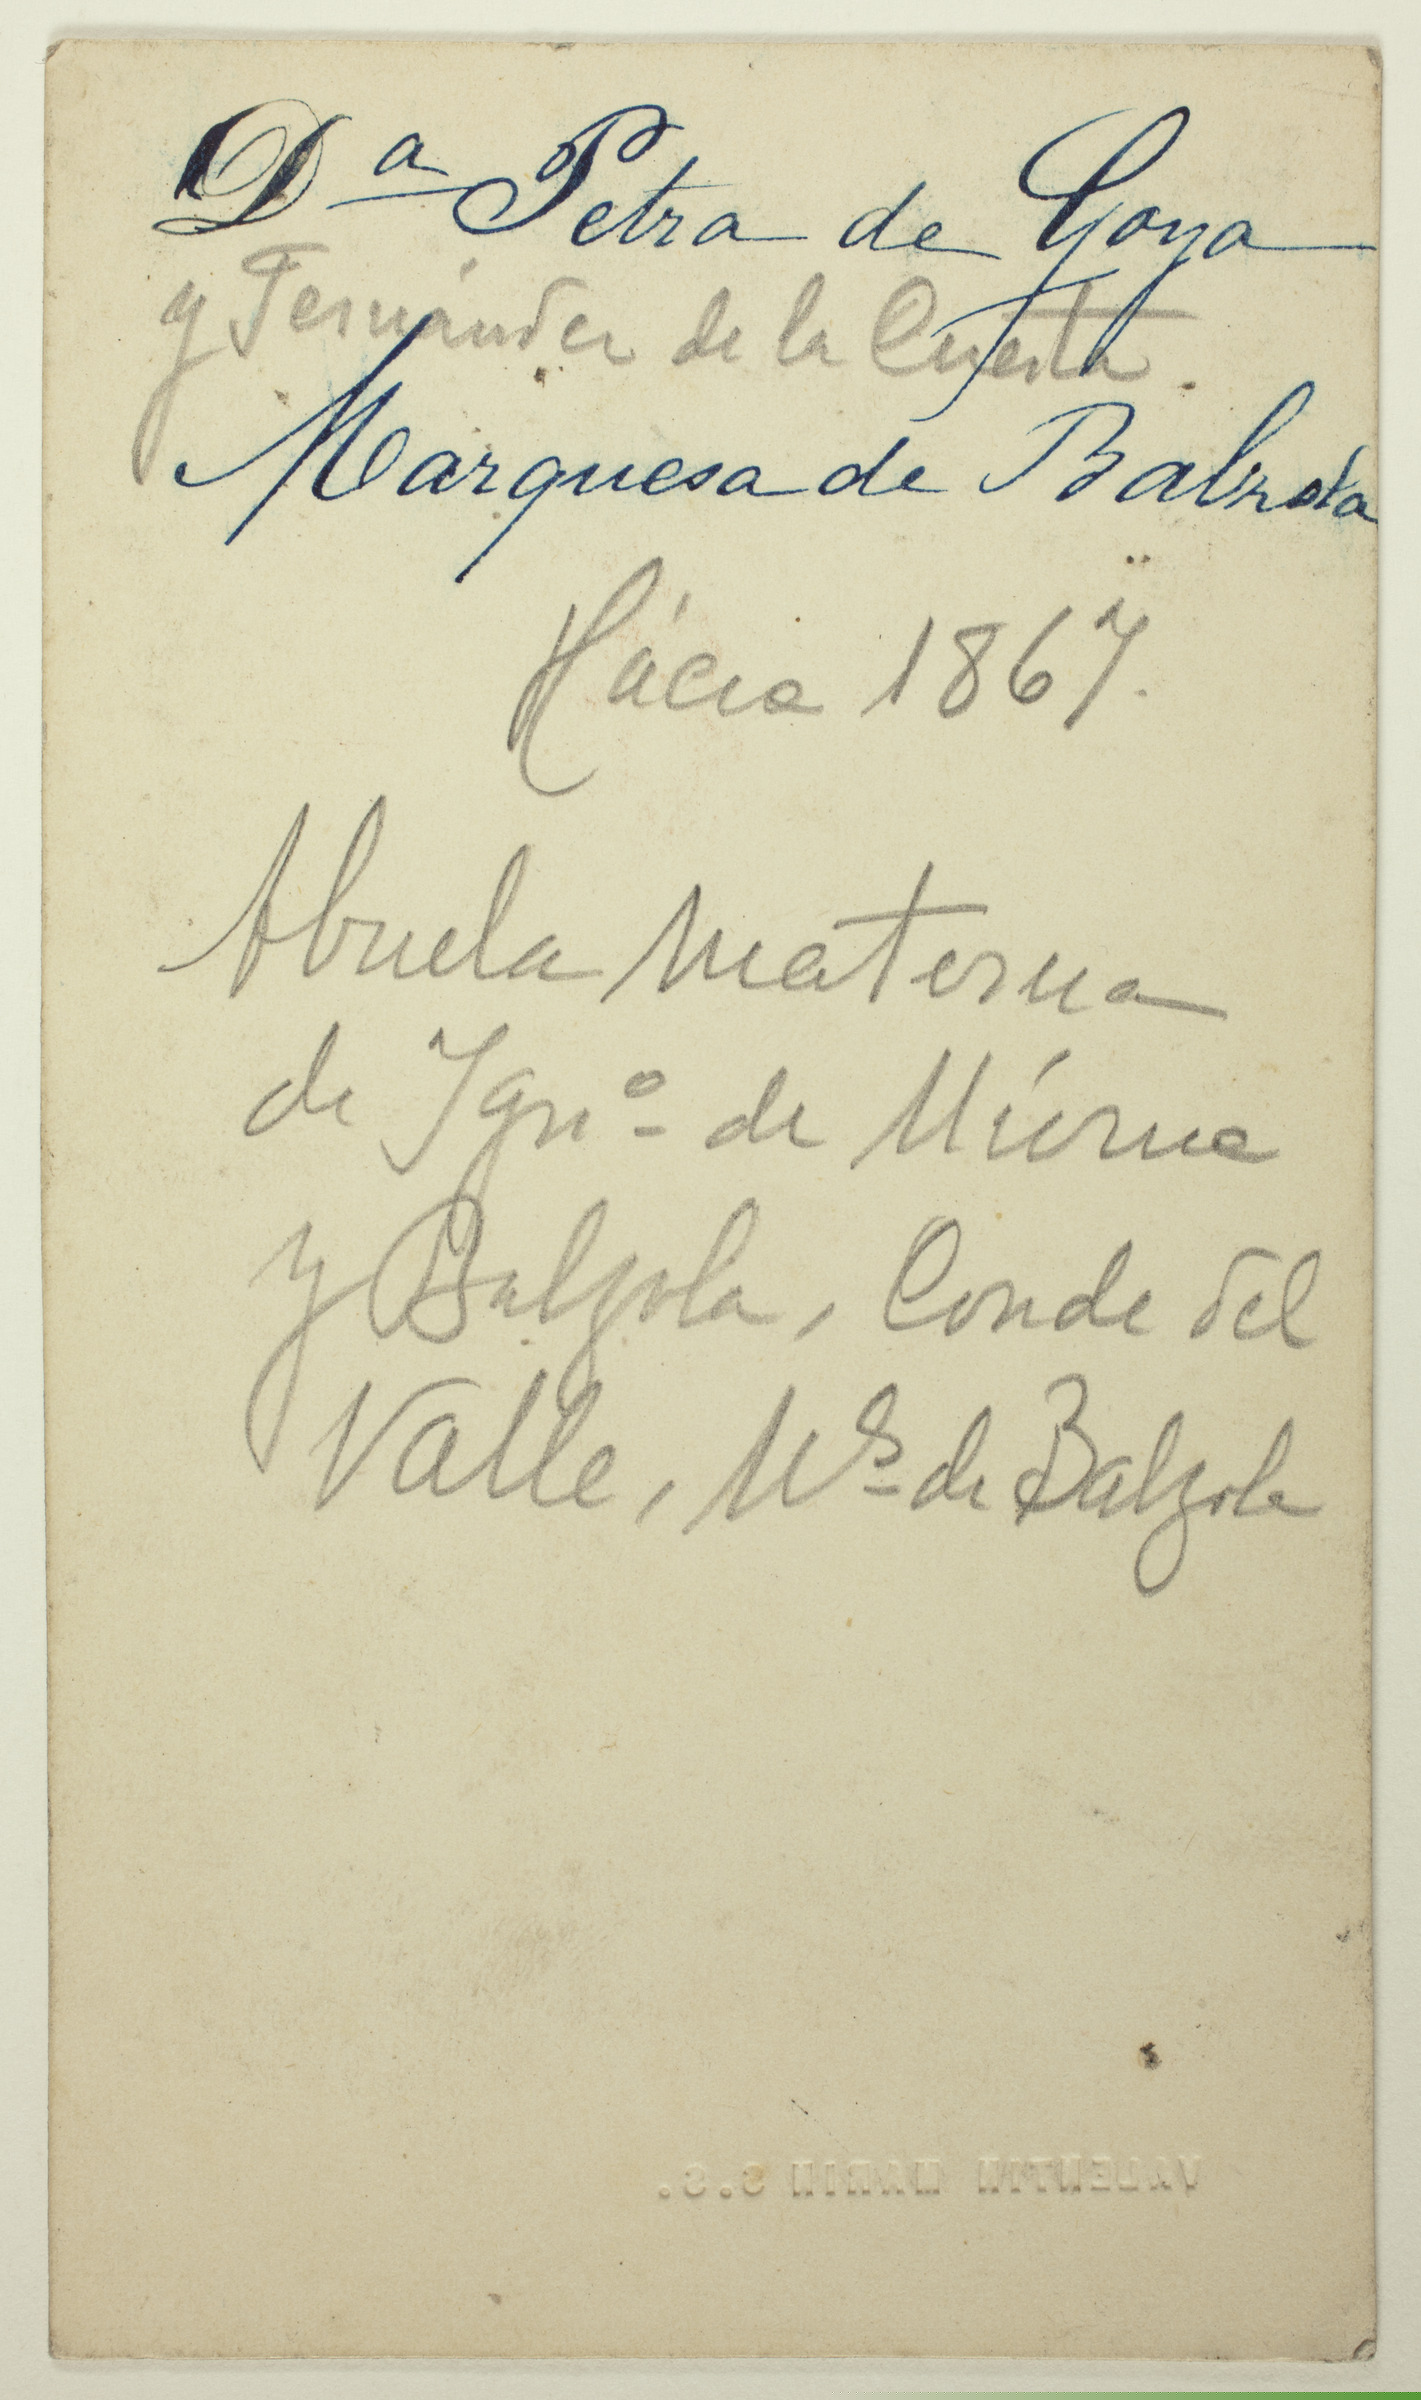 Dª Petra de Goya
y Fernández de la Cuesta.
Marquesa de Balzola
Hácia 1867.
Abuela materna
de Ignº de
y Balzola, Conde del
Valle, Mˢ de Balzola
VALENTIN MARIN S.S.